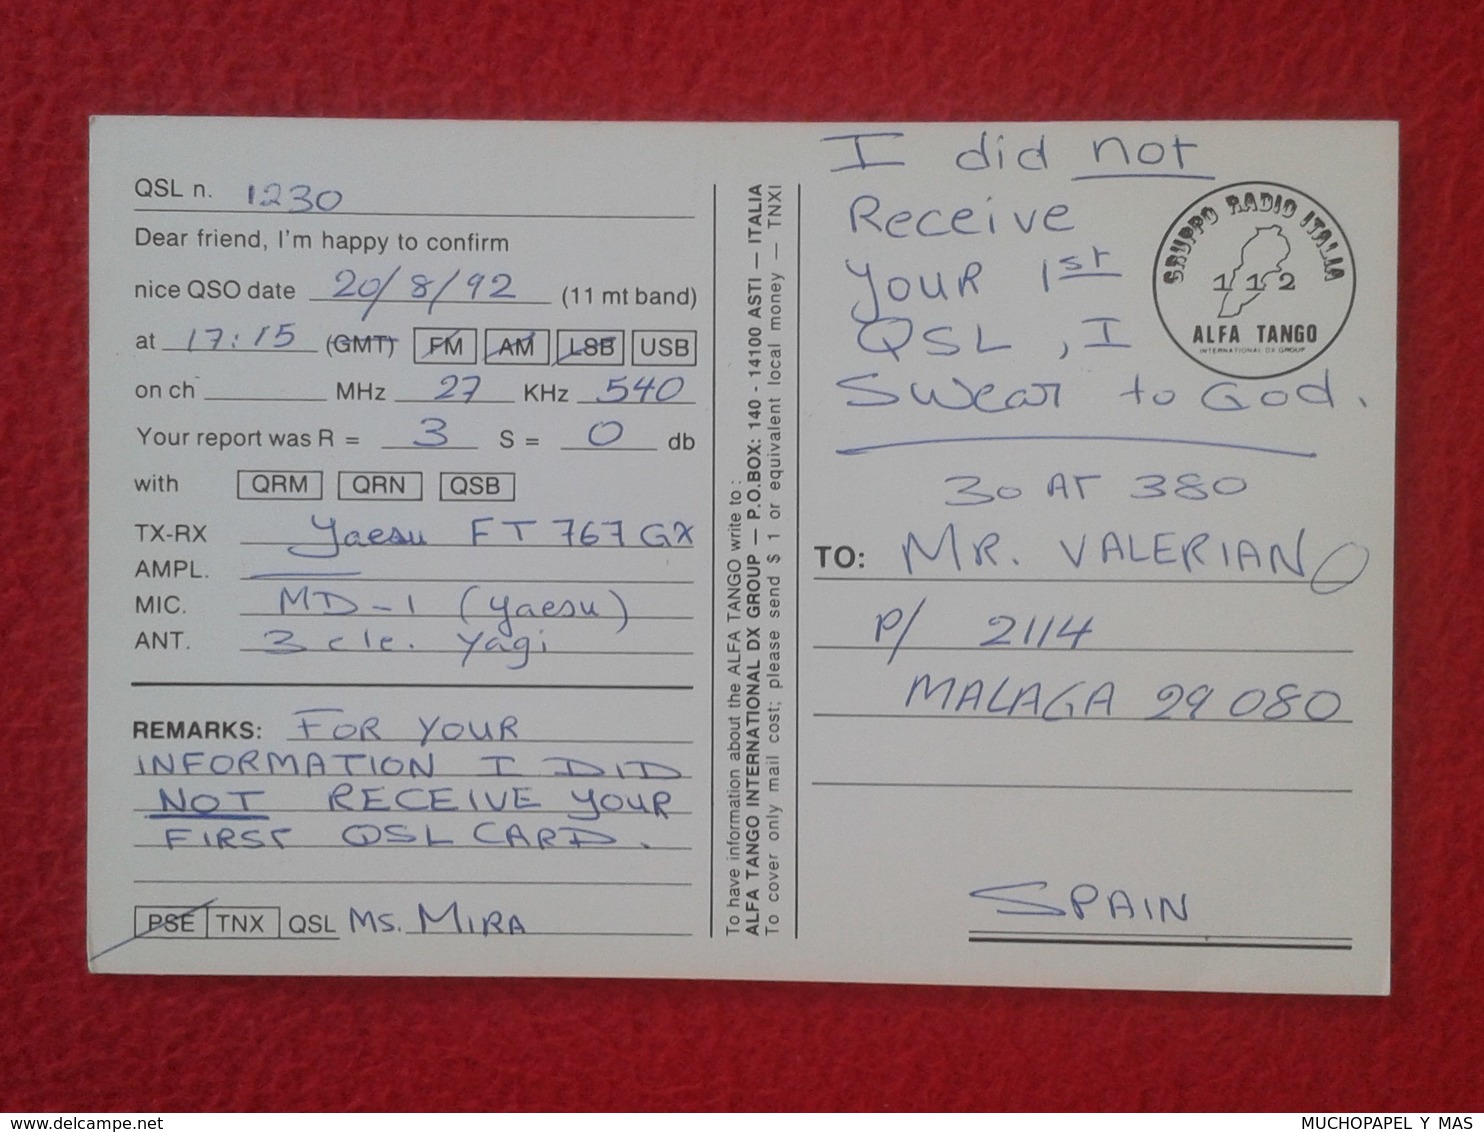 QSL n. 1230
Dear friend, I'm happy to confirm
nice QSO date 20/8/92 (11 mt band)
at 17:15 (GMT) FM AM LSB USB
on ch MHz 27 KHz 540
Your report was R = 3 S = 0 db
with QRM QRN QSB
TX-RX Yaesu FT 767 GX
AMPL. —
MIC. MD-1 (Yaesu)
ANT. 3 ele. Yagi
REMARKS: FOR YOUR
INFORMATION I DID
NOT RECEIVE YOUR
FIRST QSL CARD.
PSE TNX QSL MS. MIRA
To have information about the ALFA TANGO write to:
ALFA TANGO INTERNATIONAL DX GROUP — P.O.BOX: 140 - 14100 ASTI — ITALIA
To cover only mail cost; please send $ 1 or equivalent local money — TNXI
I did not
Receive
your 1st
QSL, I
Swear to God.
GRUPPO RADIO ITALIA
112
ALFA TANGO
INTERNATIONAL DX GROUP
30 AT 380
TO: MR. VALERIANO
P/ 2114
MALAGA 29080
SPAIN
delcampe.net
MUCHOPAPEL Y MAS